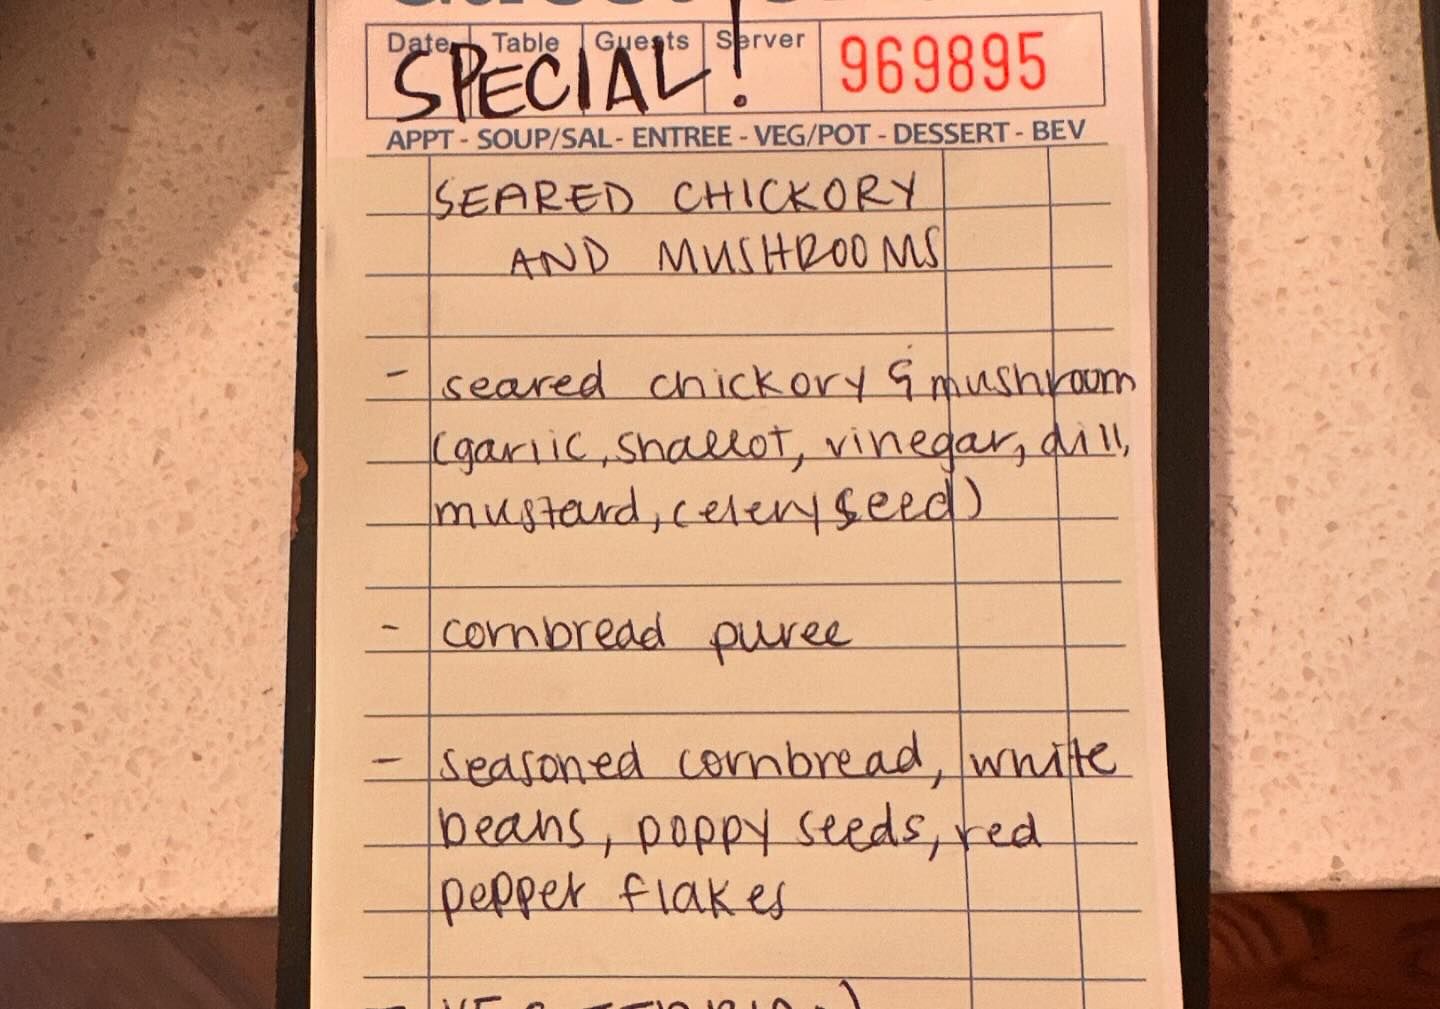 Date Table Guests Server 969895
SPECIAL!
APPT - SOUP/SAL - ENTREE - VEG/POT - DESSERT - BEV
SEARED CHICKORY
AND MUSHROOMS
- seared chickory & mushroom
(garlic, shallot, vinegar, dill,
mustard, celery seed)
- cornbread puree
- seasoned cornbread, white
beans, poppy seeds, red
pepper flakes